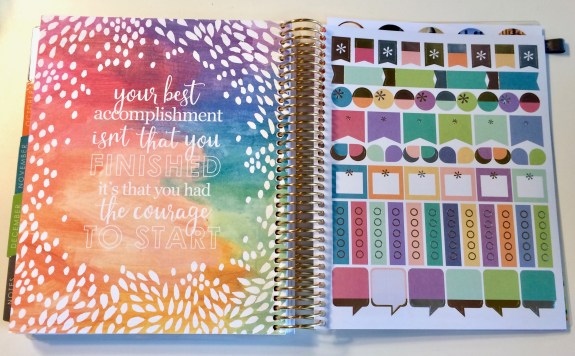 your best
accomplishment
isn't that you
FINISHED
it's that you had
the courage
TO START
NOVEMBER
DECEMBER
NOTES